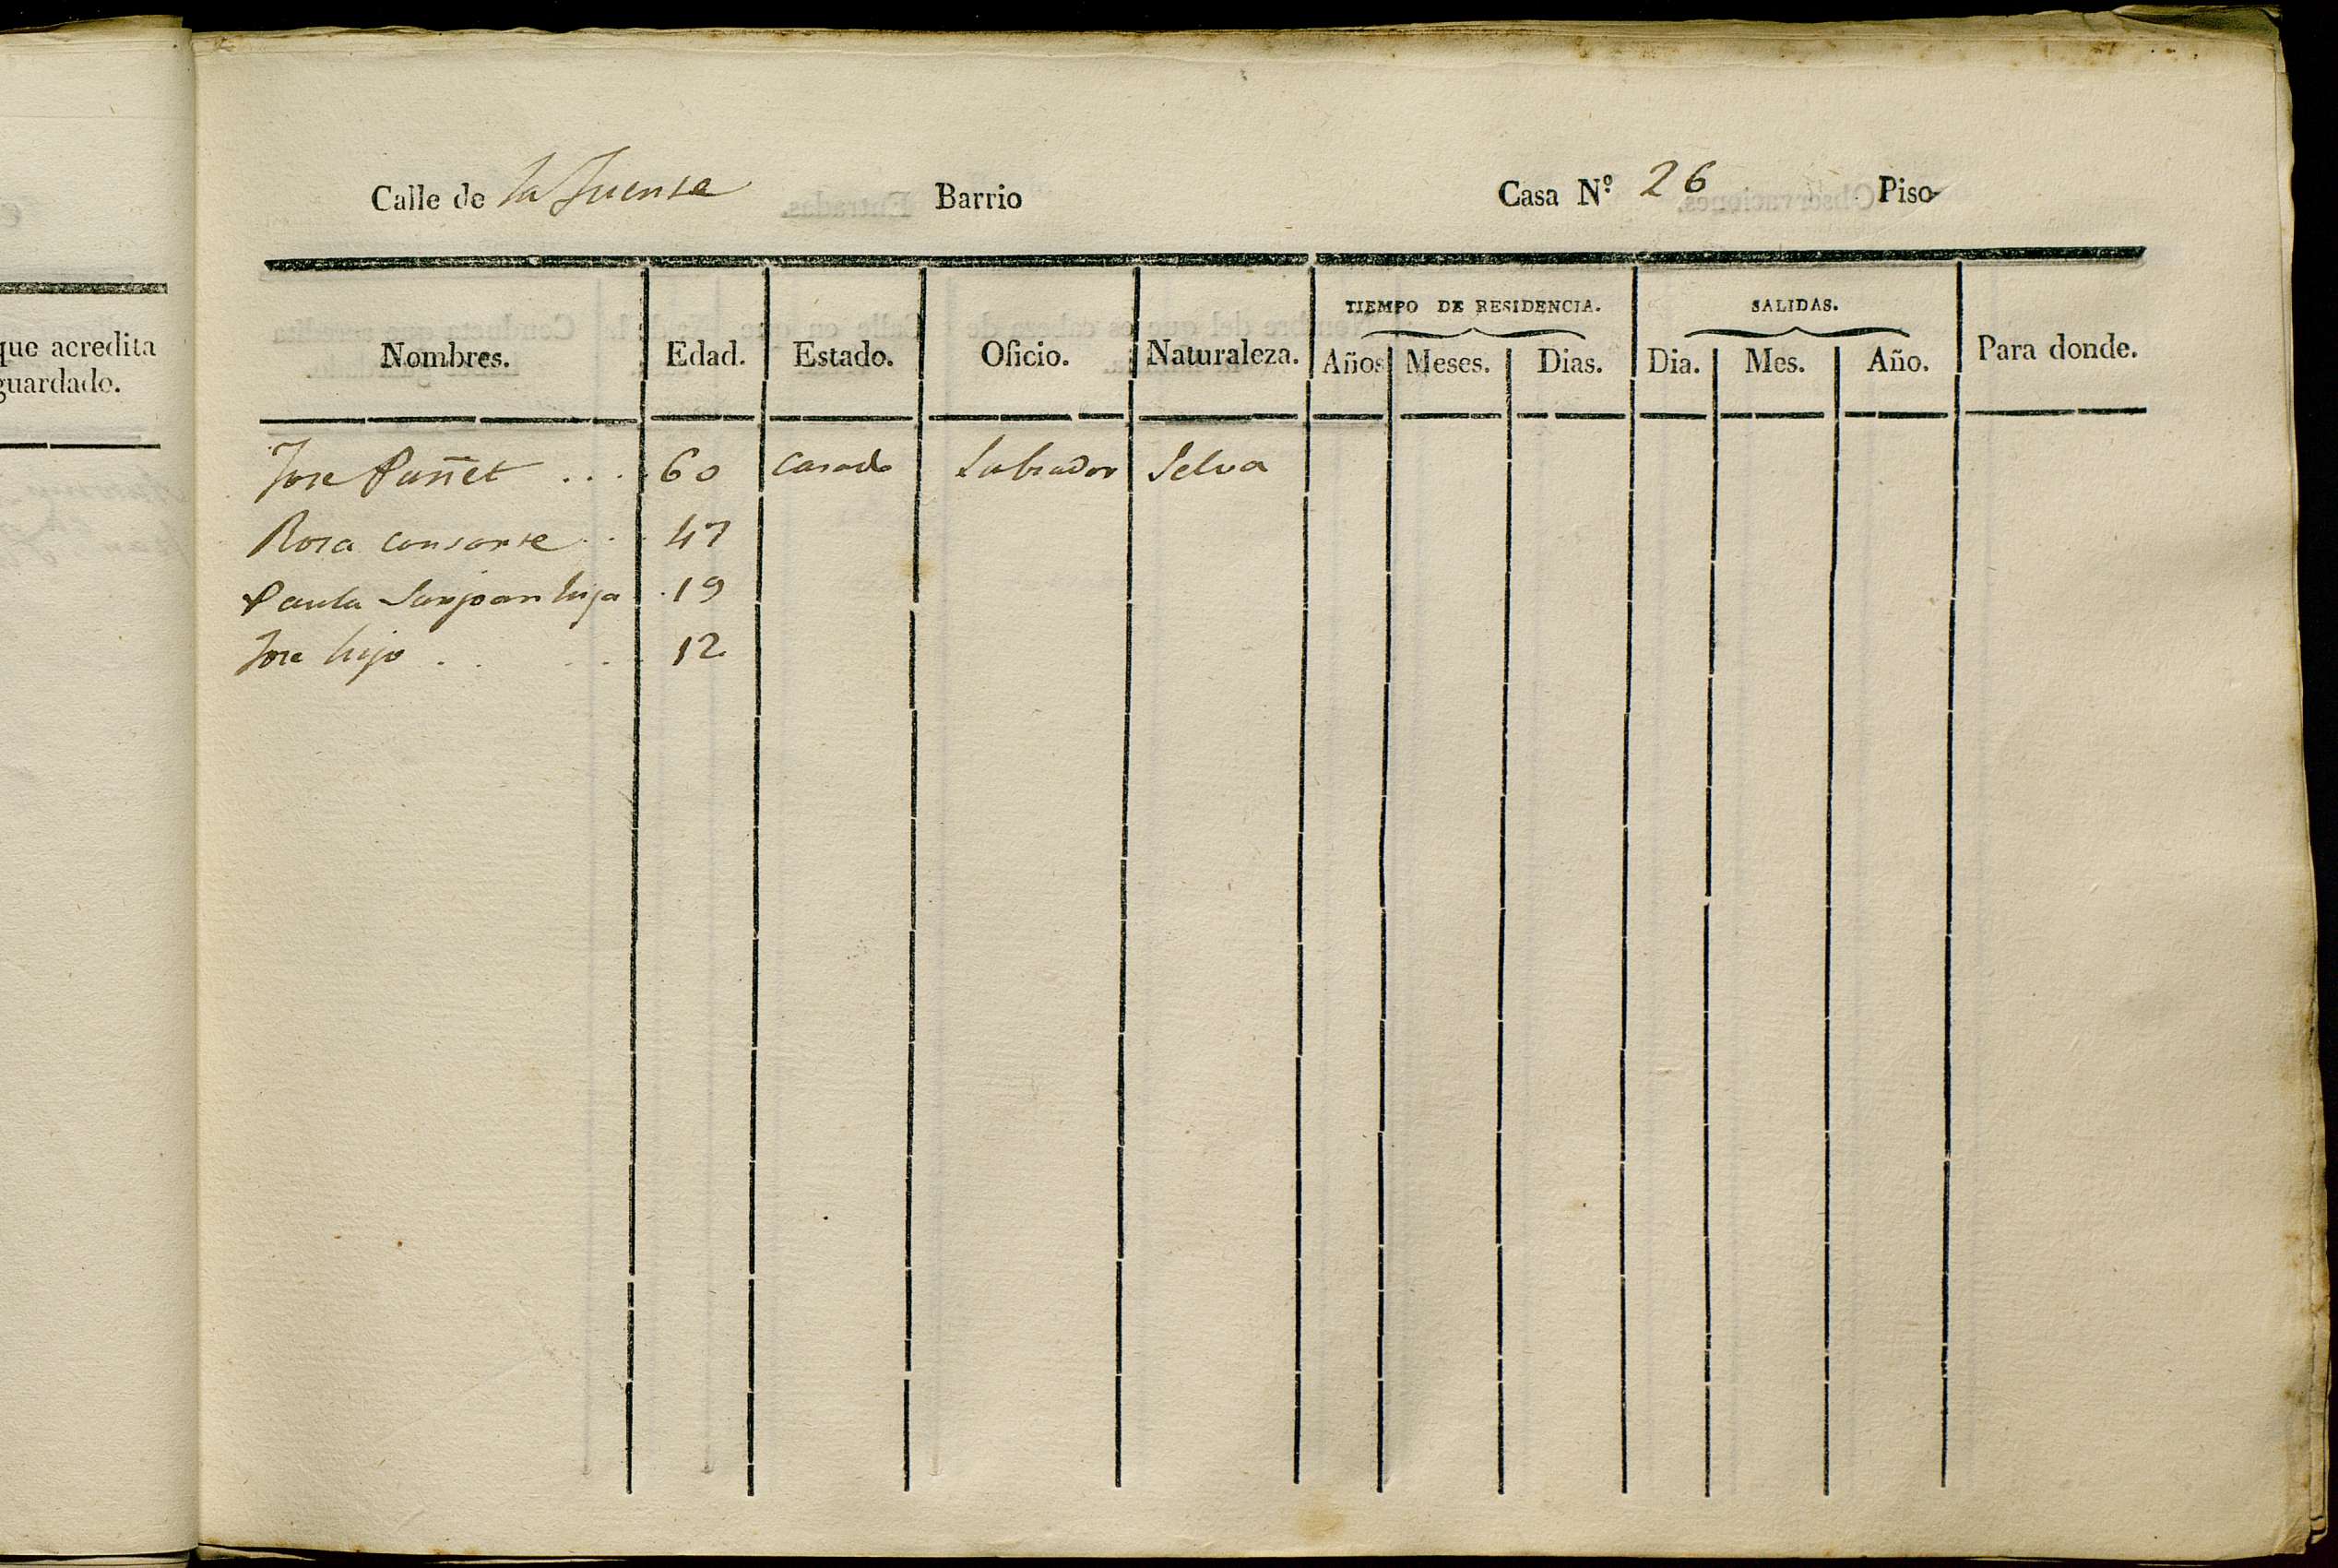 que acredita
guardado.
Calle de la Fuente Barrio Casa N.º 26 Piso
TIEMPO DE RESIDENCIA. SALIDAS.
Nombres. Edad. Estado. Oficio. Naturaleza. Años Meses. Dias. Dia. Mes. Año. Para donde.
Jose Puñet . . . 60 Casado Labrador Selva
Rosa consorte . . . 47
Paula Sanjoan hija . 19
Jose hijo . . . . . 12